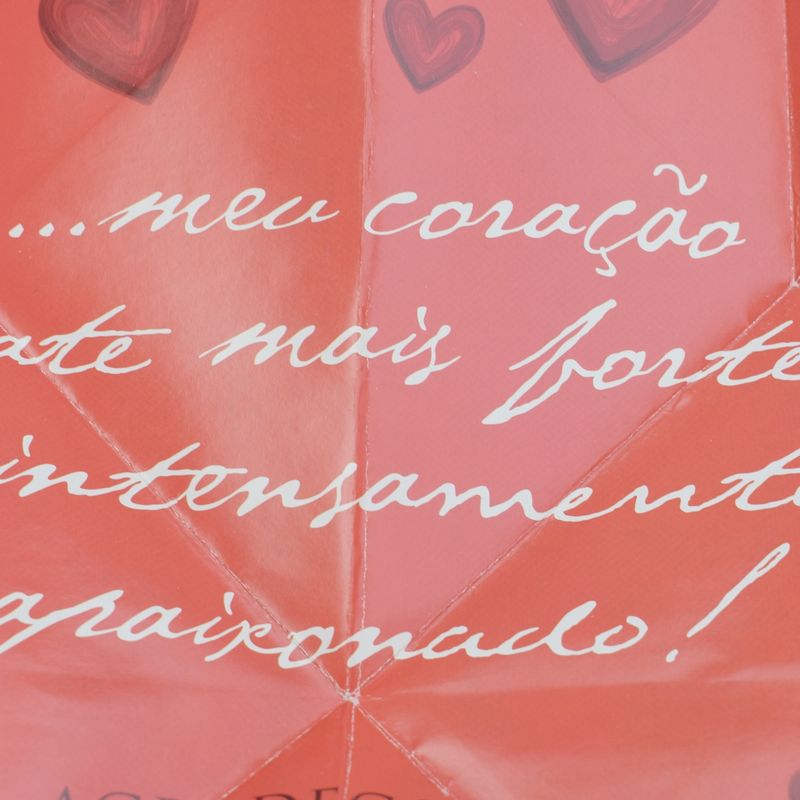 ...meu coração
bate mais forte
intensamente
apaixonado!